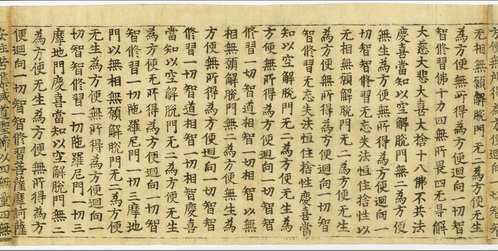 無相無願解脫門無二為方便無生
為方便無所得為方便迴向一切智
智修習佛十力四無所畏四無礙解
大慈大悲大喜大捨十八佛不共法
慶喜當知以空解脫門無二為方便
無生為方便無所得為方便迴向一
切智智修習無忘失法恒住捨性以
無相無願解脫門無二為方便無生
為方便無所得為方便迴向一切智
智修習無忘失法恒住捨性慶喜當
知以空解脫門無二為方便無生為
方便無所得為方便迴向一切智智
修習一切智道相智一切相智以無
相無願解脫門無二為方便無生為
方便無所得為方便迴向一切智智
修習一切智道相智一切相智慶喜
當知以空解脫門無二為方便無生
為方便無所得為方便迴向一切智
智修習一切陁羅尼門一切三摩地
門以無相無願解脫門無二為方便
無生為方便無所得為方便迴向一
切智智修習一切陁羅尼門一切三
摩地門慶喜當知以空解脫門無二
為方便無生為方便無所得為方
便迴向一切智智修習菩薩摩訶薩